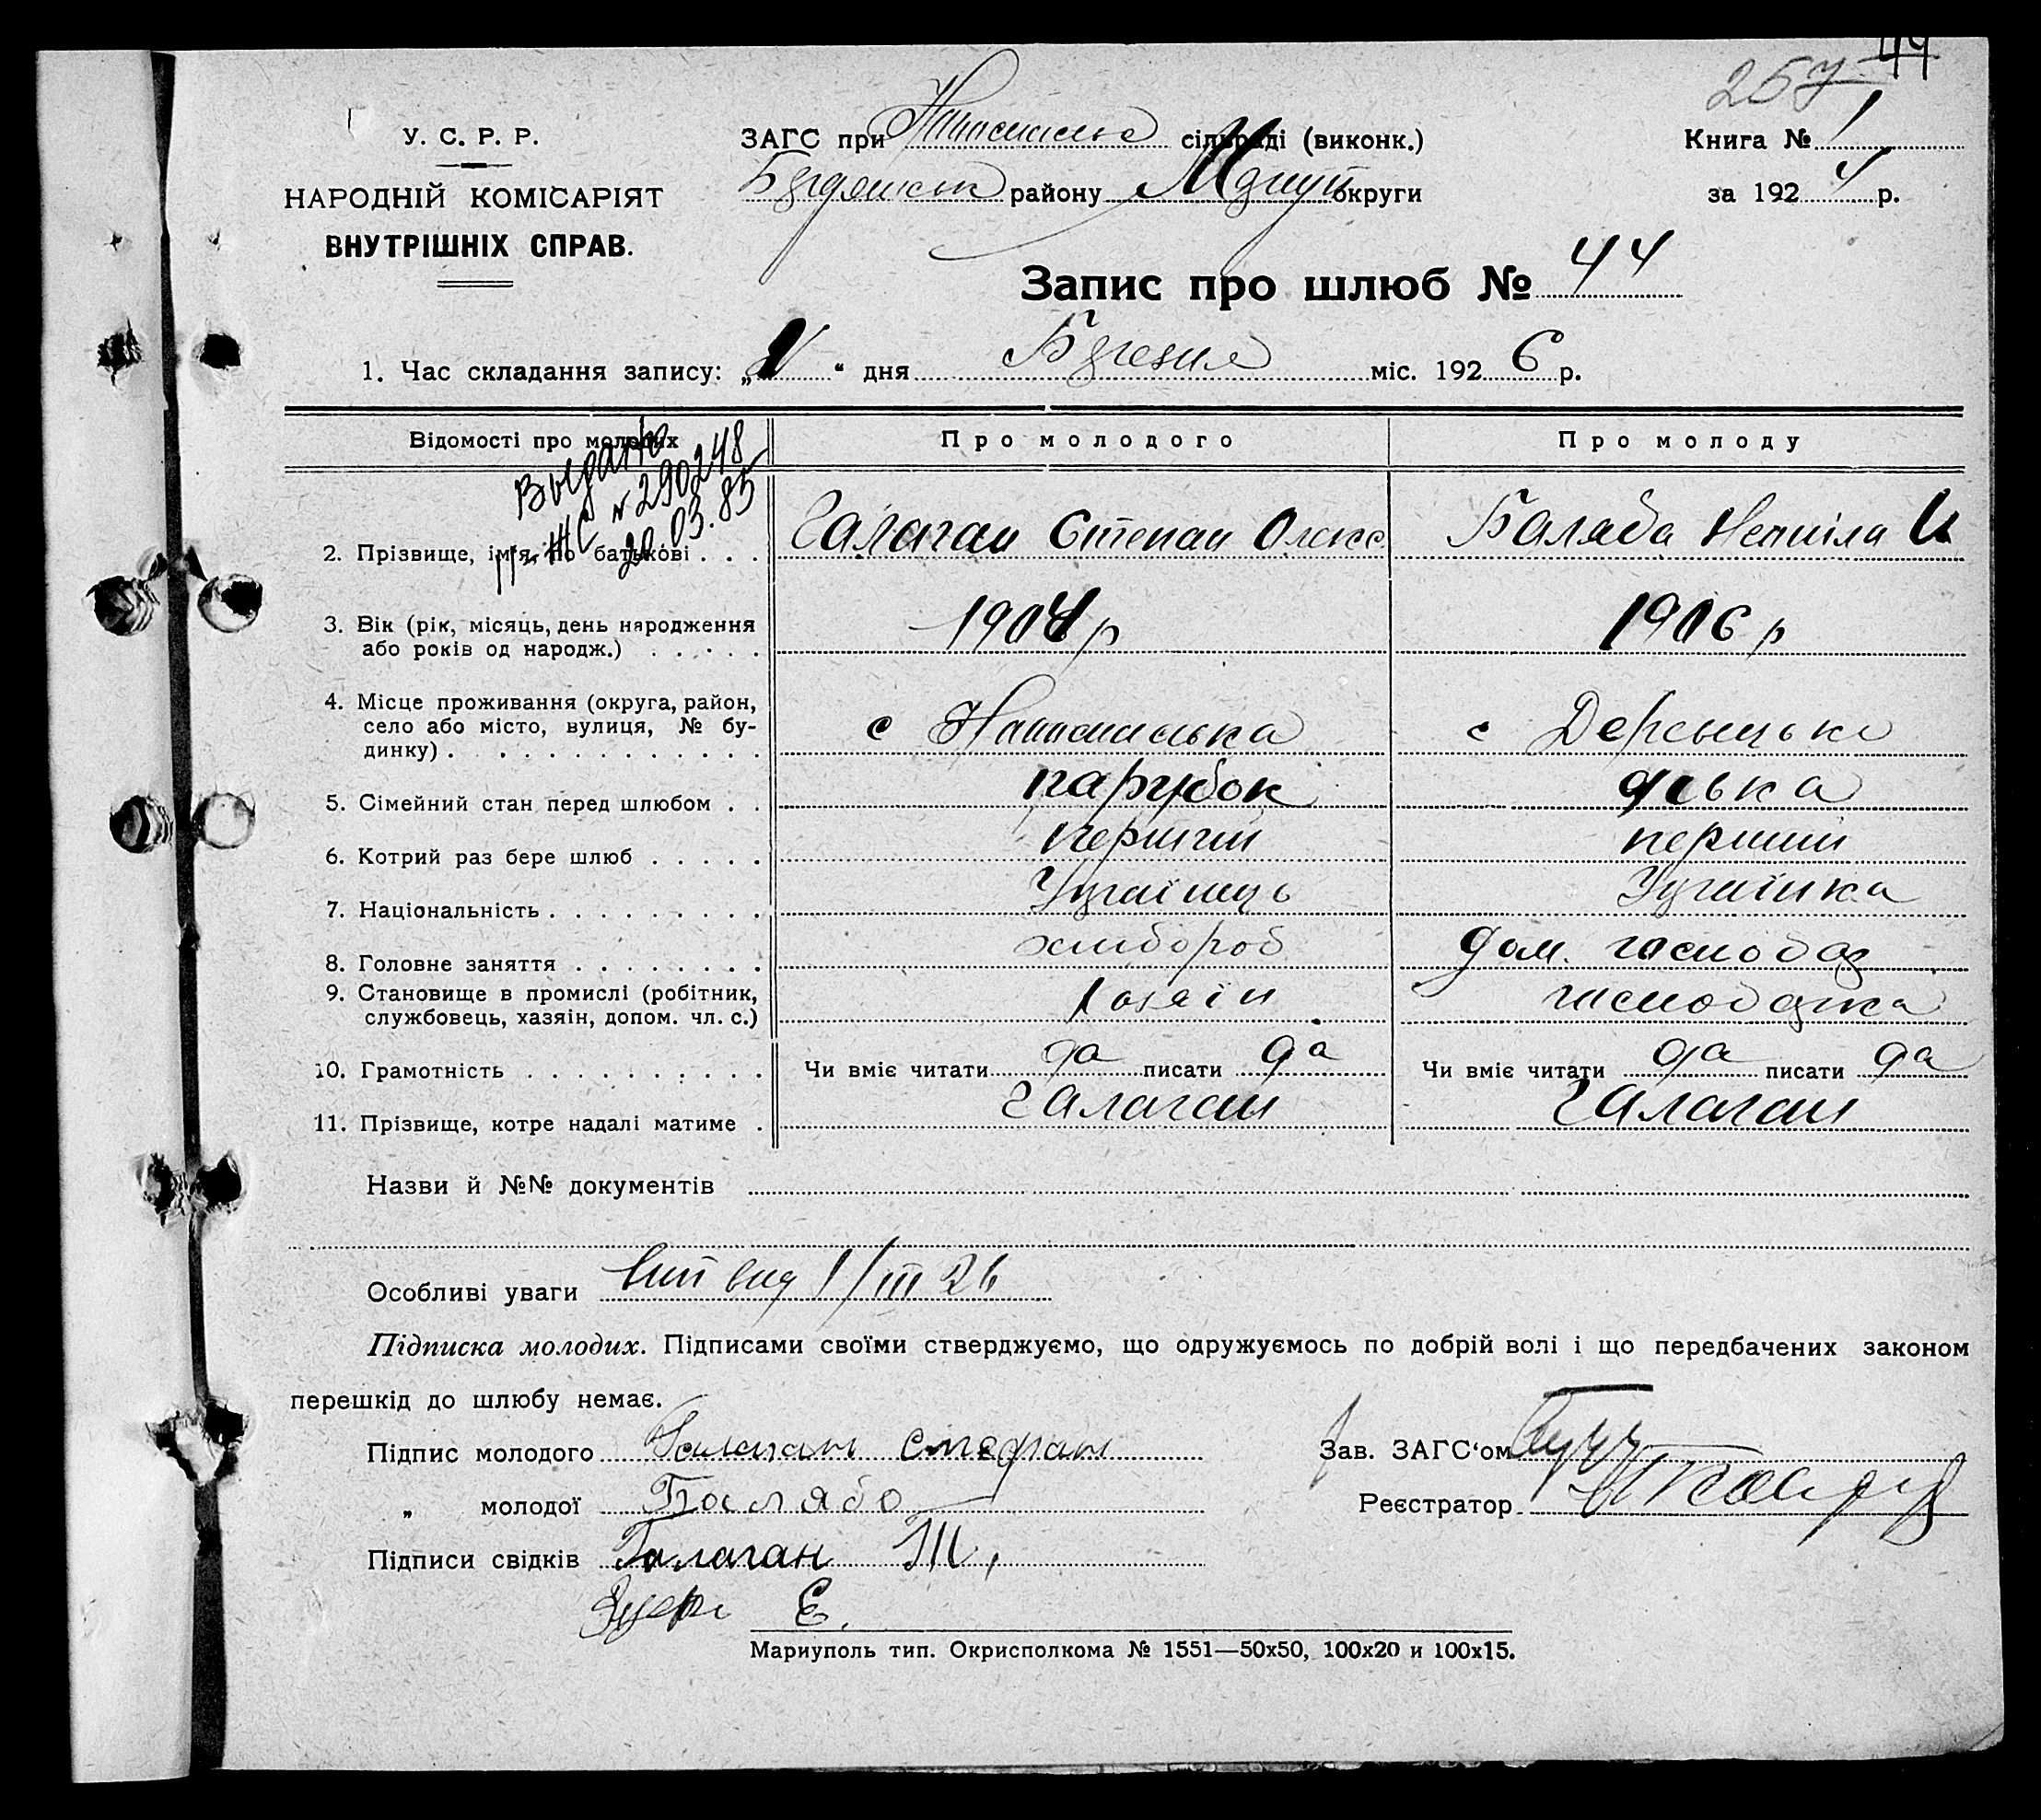 257 44
У. С. Р. Р.
НАРОДНІЙ КОМІСАРІЯТ
ВНУТРІШНІХ СПРАВ.
ЗАГС при сільраді (виконк.)
району округи
Книга № 1
за 192 р.
Запис про шлюб № 44
1. Час складання запису: „ “ дня Березня міс. 1926 р.
Відомості про молодих
Про молодого
Про молоду
№ 290248
20.03.85
2. Прізвище, ім'я, по батькові . . .
Галаган Степан Олекс
Баляба И
3. Вік (рік, місяць, день народження
або років од народж.) . . . . .
1904 р
1906 р
4. Місце проживання (округа, район,
село або місто, вулиця, № бу-
динку) . . . . . . . . . . . .
с
с
5. Сімейний стан перед шлюбом . .
парубок
дівка
6. Котрий раз бере шлюб . . . . .
перший
перший
7. Національність . . . . . . . . .
Українець
Українка
8. Головне заняття . . . . . . . .
хлібороб
дом. господар
9. Становище в промислі (робітник,
службовець, хазяін, допом. чл. с.)
хозяїн
господарка
10. Грамотність . . . . . . . . . .
Чи вміє читати да писати да
Чи вміє читати да писати да
11. Прізвище, котре надалі матиме .
Галаган
Галаган
Назви й №№ документів
Особливі уваги 1/III 26
Підписка молодих. Підписами своїми стверджуємо, що одружуємось по добрій волі і що передбачених законом
перешкід до шлюбу немає.
Підпис молодого Галаган Стефан
Зав. ЗАГС‘ом
„ молодої Баслябо
Реєстратор
Підписи свідків Галаган Т.
Є.
Мариуполь тип. Окрисполкома № 1551—50x50, 100x20 и 100x15.